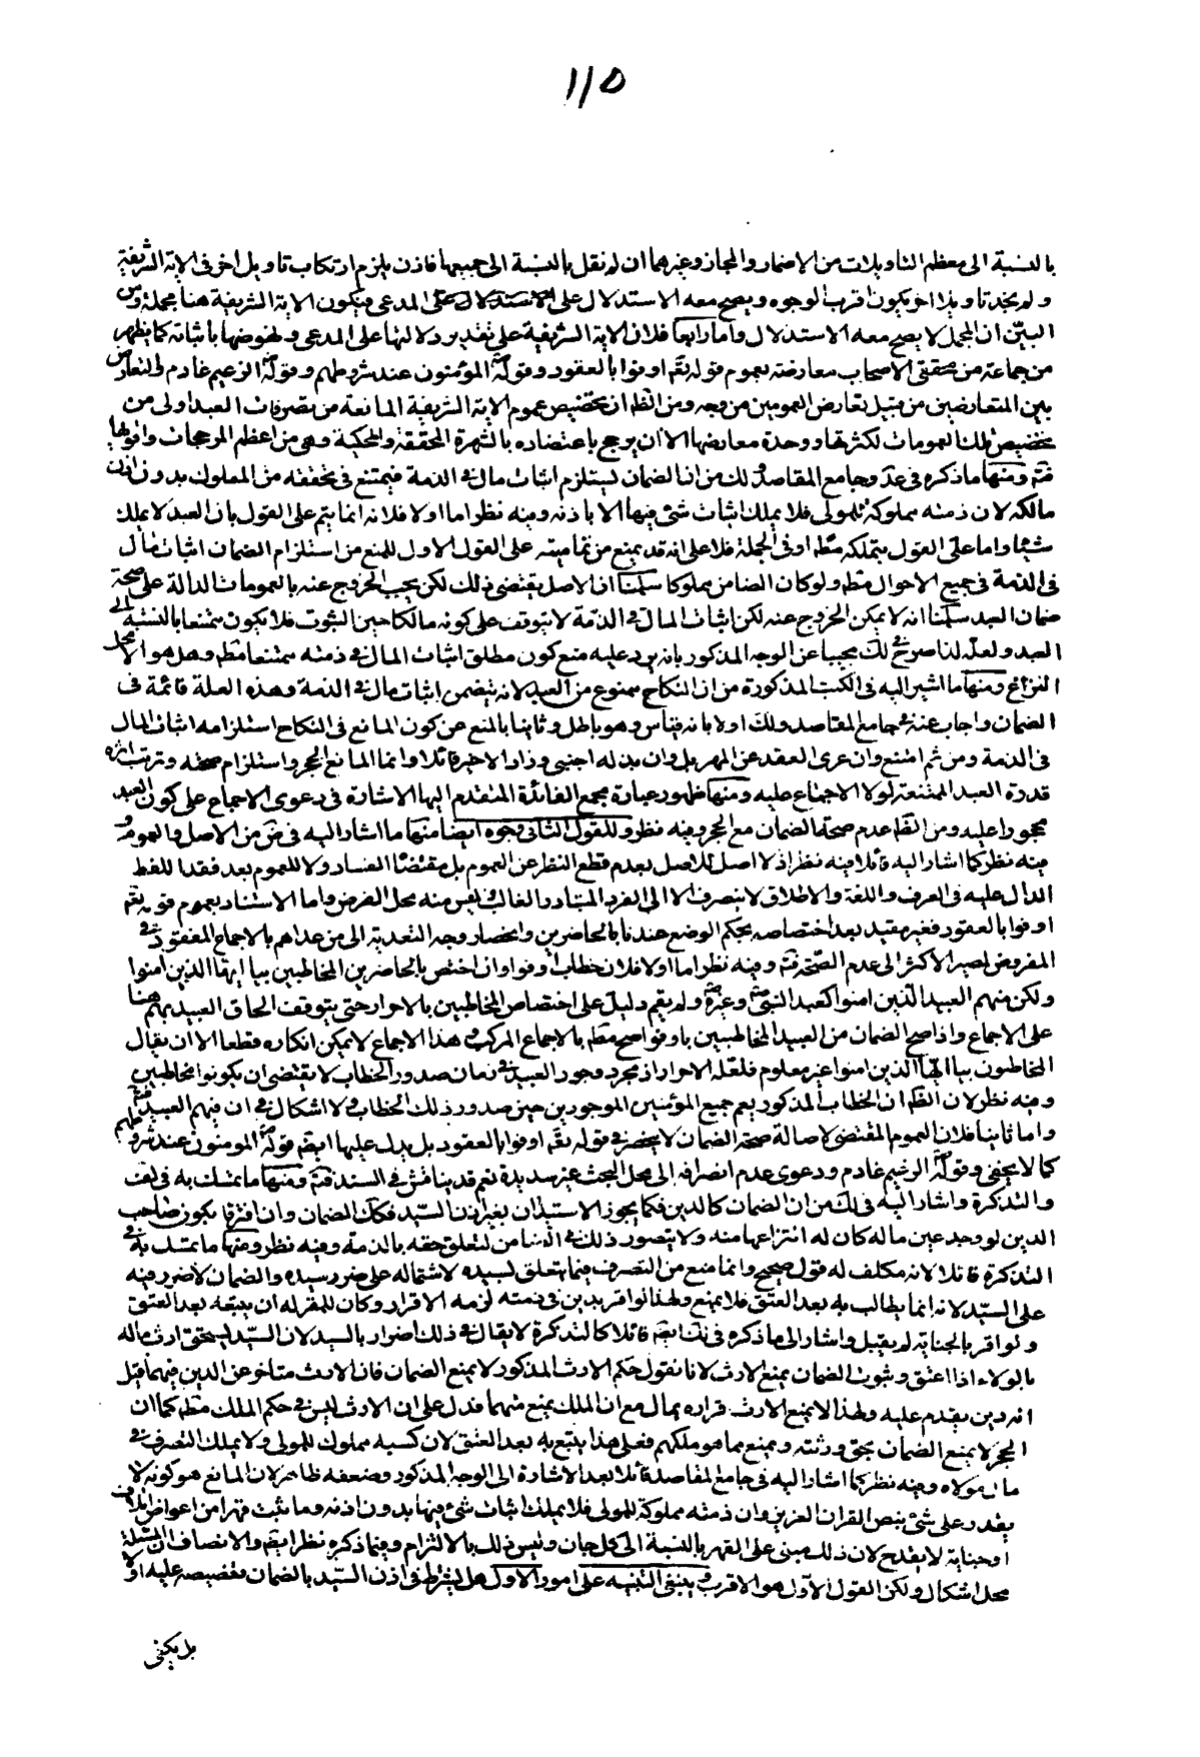 ١١٥
بالنسبة الى معظم التاويلات من الاضمار والمجاز وغيرهما ان لم نقل بالنسبة الى جميعها فاذن يلزم ارتكاب تاويل اخر فى الاية الشريفة
ولم نجد تاويلا اخر يكون اقرب الوجوه ويصح معه الاستدلال على الاستدلال على المدعى فيكون الاية الشريفة هنا مجملة ومن
البيّن ان المجمل لا يصح معه الاستدلال واما رابعا فلان الاية الشريفة على تقدير دلالتها على المدعى ونهوضها باثباته كما يظهر
من جماعة من محققى الاصحاب معارضة بعموم قوله تعم اوفوا بالعقود وقوله ص المؤمنون عند شروطهم وقوله ص الزعيم غادم والتعارض
بين المتعارضين من قبيل تعارض العمومين من وجه ومن الظ ان تخصيص عموم الاية الشريفة المانعة من تصرفات العبد اولى من
تخصيص تلك العمومات لكثرتها ووحدة معارضها الا ان يرجح باعتضاده بالشهرة المحققة والمحكية وهى من اعظم المرجحات واقويها
فتم ومنها ما ذكره فى عد وجامع المقاصد ولك من ان الضمان يستلزم اثبات مال فى الذمة فيمتنع فى تحققه من المملوك بدون اذن
مالكه لان ذمته مملوكة للمولى فلا يملك اثبات شئ فيها الا باذنه وفيه نظر اما اولا فلانه انما يتم على القول بان العبد لا يملك
شيئا واما على القول بتملكه مطم او فى الجملة فلا على انه قد يمنع من تماميته على القول الاول للمنع من استلزام الضمان اثبات مال
فى الذمة فى جميع الاحوال مطم ولو كان الضامن مملوكا سلمنا ان الاصل يقتضى ذلك لكن يجب الخروج عنه بالعمومات الدالة على صحة
ضمان العبد سلمنا انه لا يمكن الخروج عنه لكن اثبات المال فى الذمة لا يتوقف على كونه مالكا حين الثبوت فلا يكون ممتنعا بالنسبة الى
العبد ولعله لذا صرح فى لك مجيبا عن الوجه المذكور بانه يرد عليه منع كون مطلق اثبات المال فى ذمته ممتنعا مطم وهل هو الا محل
النزاع ومنها ما اشير اليه فى الكتب المذكورة من ان النكاح ممنوع من العبد لانه يتضمن اثبات مال فى الذمة وهذه العلة قائمة فى
الضمان واجاب عنه فى جامع المقاصد ولك اولا بانه قياس وهو باطل وثانيا بالمنع عن كون المانع فى النكاح استلزامه اثبات المال
فى الذمة ومن ثم امتنع وان عرى العقد عن المهر بل وان بذله اجنبى وزاد الاخير قائلا وانما المانع الحجر واستلزام صحته وترتب اثره
قدرة العبد الممتنعة لولا الاجماع عليه ومنها ظهور عبارة مجمع الفائدة المتقدم اليها الاشارة فى دعوى الاجماع على كون العبد
محجورا عليه ومن الظ عدم صحة الضمان مع الحجر وفيه نظر وللقول الثانى وجوه ايضا منها ما اشار اليه فى ض من الاصل والعموم و
فيه نظر كما اشار اليه قائلا فيه نظر اذ لا اصل للاصل بعدم قطع النظر عن العموم بل مقتضاه الفساد ولا للعموم بعد فقد اللفظ
الدال عليه فى العرف واللغة والاطلاق لا ينصرف الا الى الفرد المتبادر والغالب وليس منه محل الفرض واما الاستناد بعموم قوله تعم
اوفوا بالعقود فغير مفيد بعد اختصاصه بحكم الوضع عندنا بالحاضرين وانحصار وجه التعدية الى من عداهم بالاجماع المفقود فى
المفروض لمصير الاكثر الى عدم الصحة فتم وفيه نظر اما اولا فلان خطاب اوفوا وان اختص بالحاضرين المخاطبين بيا ايها الذين امنوا
ولكن منهم العبيد الذين امنوا كعبد النبى ص وغيره ولم يقم دليل على اختصاص المخاطبين بالاحرار حتى يتوقف الحاق العبيد بهم هنا
على الاجماع واذا صح الضمان من العبيد المخاطبين باوفوا صح مطم بالاجماع المركب وهذا الاجماع لا يمكن انكاره قطعا الا ان يقال
المخاطبون بيا ايها الذين امنوا غير معلوم فلعله الاحرار اذ مجرد وجود العبيد فى زمان صدور الخطاب لا يقتضى ان يكونوا مخاطبين
وفيه نظر لان الظ ان الخطاب المذكور يعم جميع المؤمنين الموجودين حين صدور ذلك الخطاب ولا اشكال فى ان فيهم العبيد فتم
واما ثانيا فلان العموم المقتضى لاصالة صحة الضمان لا ينحصر فى قوله تعم اوفوا بالعقود بل يدل عليها ايضم قوله ص المومنون عند شروطهم
كما لا يخفى وقوله ص الزعيم غادم ودعوى عدم انصرافه الى محل البحث غير سديدة نعم قد يناقش فى السند فتم ومنها ما تمسك به فى لف
والتذكرة واشار اليه فى لك من ان الضمان كالدين فكما يجوز الاستيذان بغير اذن السيد فكك الضمان وان افترقا بكون صاحب
الدين لو وجد عين ماله كان له انتزاعها منه ولا يتصور ذلك فى الضامن لتعلق حقه بالذمة وفيه نظر ومنها ما تمسك به فى
التذكرة قائلا لانه مكلف له قول صحيح وانما منع من التصرف فيما يتعلق بسيده لاشتماله على ضرر سيده والضمان لا ضرر فيه
على السيد لانه انما يطالب به بعد العتق فلا يمنع ولهذا لو اقر بدين فى ذمته لزمه الاقرار وكان للمقر له ان يتبعه بعد العتق
ولو اقر بالجناية لم يقبل واشار الى ما ذكره فى لك ايضم قائلا كالتذكرة لا يقال فى ذلك اضرار بالسيد لان السيد يستحق ارث ماله
بالولاء اذا اعتق وثبوت الضمان يمنع الارث لانا نقول حكم الارث المذكور لا يمنع الضمان فان الارث متاخر عن الدين فيهما قبل
انه دين يقدم عليه ولهذا لا يمنع الارث قراره بمال مع ان الملك يمنع منهما فدل على ان الارث ليس فى حكم الملك مطم كما ان
الحجر لا يمنع الضمان بحق ورثته ويمنع مما هو ملكهم فعلى هذا يتبع به بعد العتق لان كسبه مملوك للمولى ولا يملك التصرف فى
مال مولاه وفيه نظر كما اشار اليه فى جامع المقاصد قائلا بعد الاشارة الى الوجه المذكور وضعفه ظاهر لان المانع هو كونه لا
يقدر على شئ بنص القران العزيز وان ذمته مملوكة للمولى فلا يملك اثبات شئ فيها بدون اذنه وما يثبت قهرا من اعواض اتلاف
او جناية لا يقدح لان ذلك مبنى على القهر بالنسبة الى كل جان وليس ذلك بالالتزام وفيما ذكره نظر ايضم والانصاف ان المسئلة
محل اشكال ولكن القول الاول هو الاقرب و ينبغى التنبيه على امور الاول هل يشترط فى اذن السيد بالضمان تخصيصه عليه او لا
بل يكفى